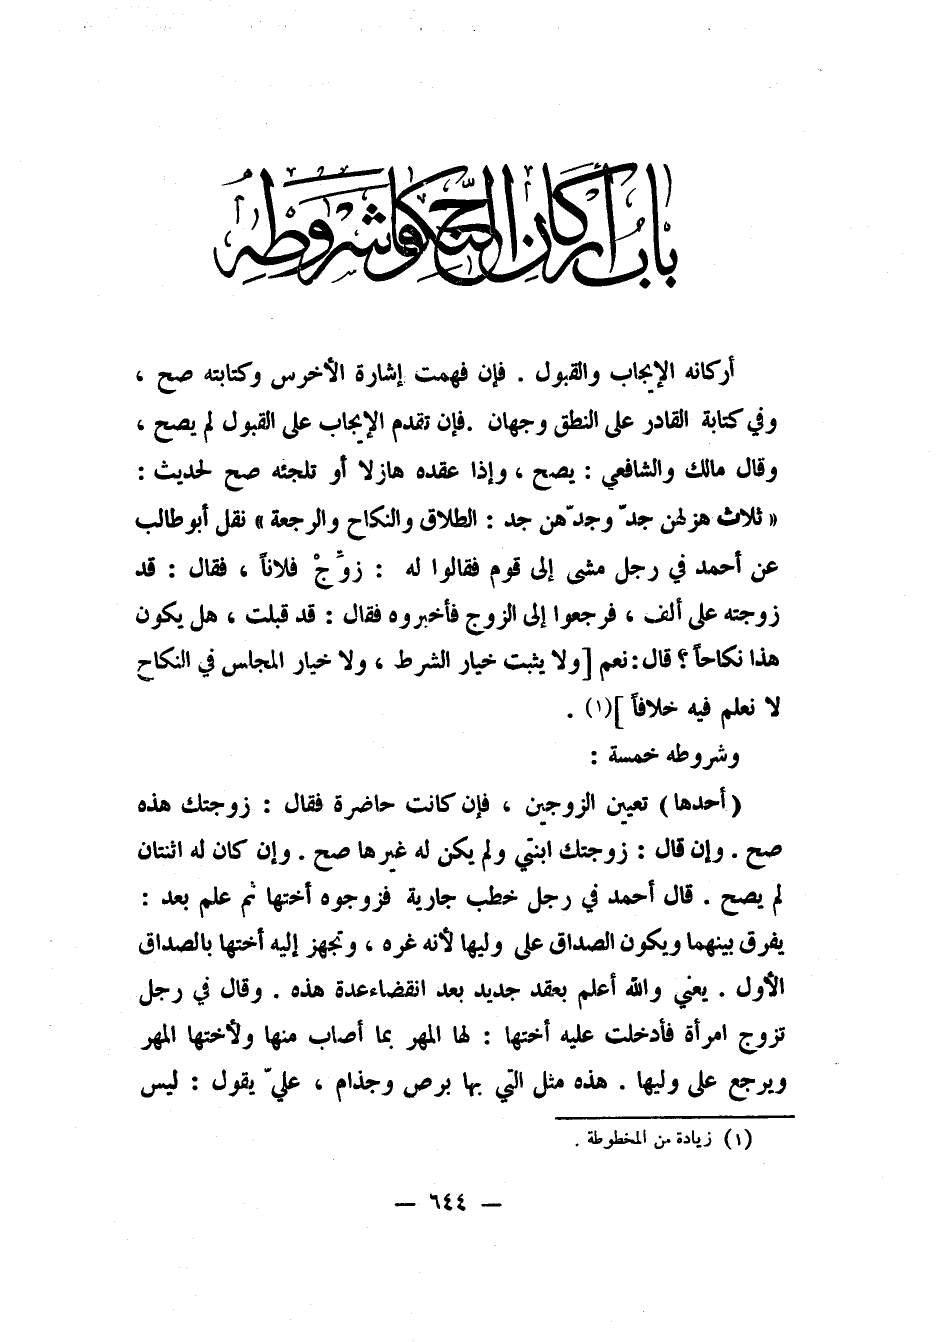 باب أركان النكاح وشروطه
أركانه الإيجاب والقبول . فإن فهمت إشارة الأخرس وكتابته صح ،
وفي كتابة القادر على النطق وجهان .فإن تقدم الإيجاب على القبول لم يصح ،
وقال مالك والشافعي : يصح ، وإذا عقده هازلا أو تلجئه صح لحديث :
« ثلاث هزلهن جدّ وجدّهن جد : الطلاق والنكاح والرجعة » نقل أبو طالب
عن أحمد في رجل مشى إلى قوم فقالوا له : زوِّجْ فلاناً ، فقال : قد
زوجته على ألف ، فرجعوا إلى الزوج فأخبروه فقال : قد قبلت ، هل يكون
هذا نكاحاً ؟ قال : نعم [ولا يثبت خيار الشرط ، ولا خيار المجلس في النكاح
لا نعلم فيه خلافاً ](١) .
وشروطه خمسة :
(أحدها) تعيين الزوجين ، فإن كانت حاضرة فقال : زوجتك هذه
صح . وإن قال : زوجتك ابنتي ولم يكن له غيرها صح . وإن كان له اثنتان
لم يصح . قال أحمد في رجل خطب جارية فزوجوه أختها ثم علم بعد :
يفرق بينهما ويكون الصداق على وليها لأنه غره ، وتجهز إليه أختها بالصداق
الأول . يعني والله أعلم بعقد جديد بعد انقضاء عدة هذه . وقال في رجل
تزوج امرأة فأدخلت عليه أختها : لها المهر بما أصاب منها ولأختها المهر
ويرجع على وليها . هذه مثل التي بها برص وجذام ، عليّ يقول : ليس
(١) زيادة من المخطوطة .
— ٦٤٤ —